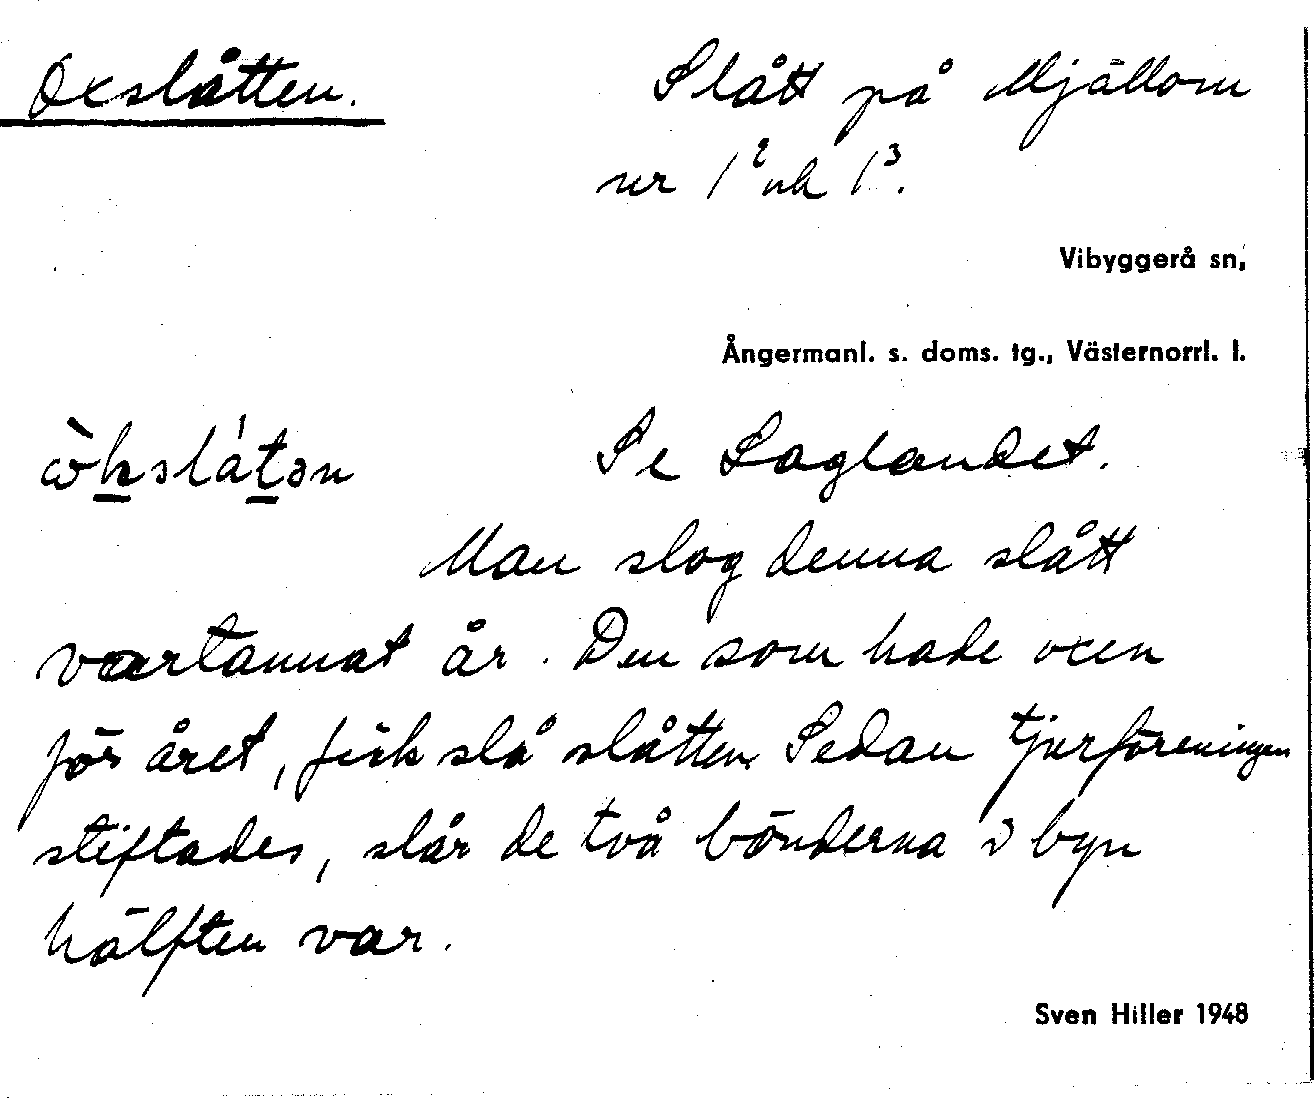 Oxslåtten.
Slått på Mjällom
nr 1² och 1³.
Vibyggerå sn,
Ångermanl. s. doms. tg., Västernorrl. l.
ὼkslåtən
Se Laglandet.
Man slog denna slått
vartannat år. Den som hade oxen
för året, fick slå slåtten. Sedan tjurföreningen
stiftades, slår de två bönderna i byn
hälften var.
Sven Hiller 1948